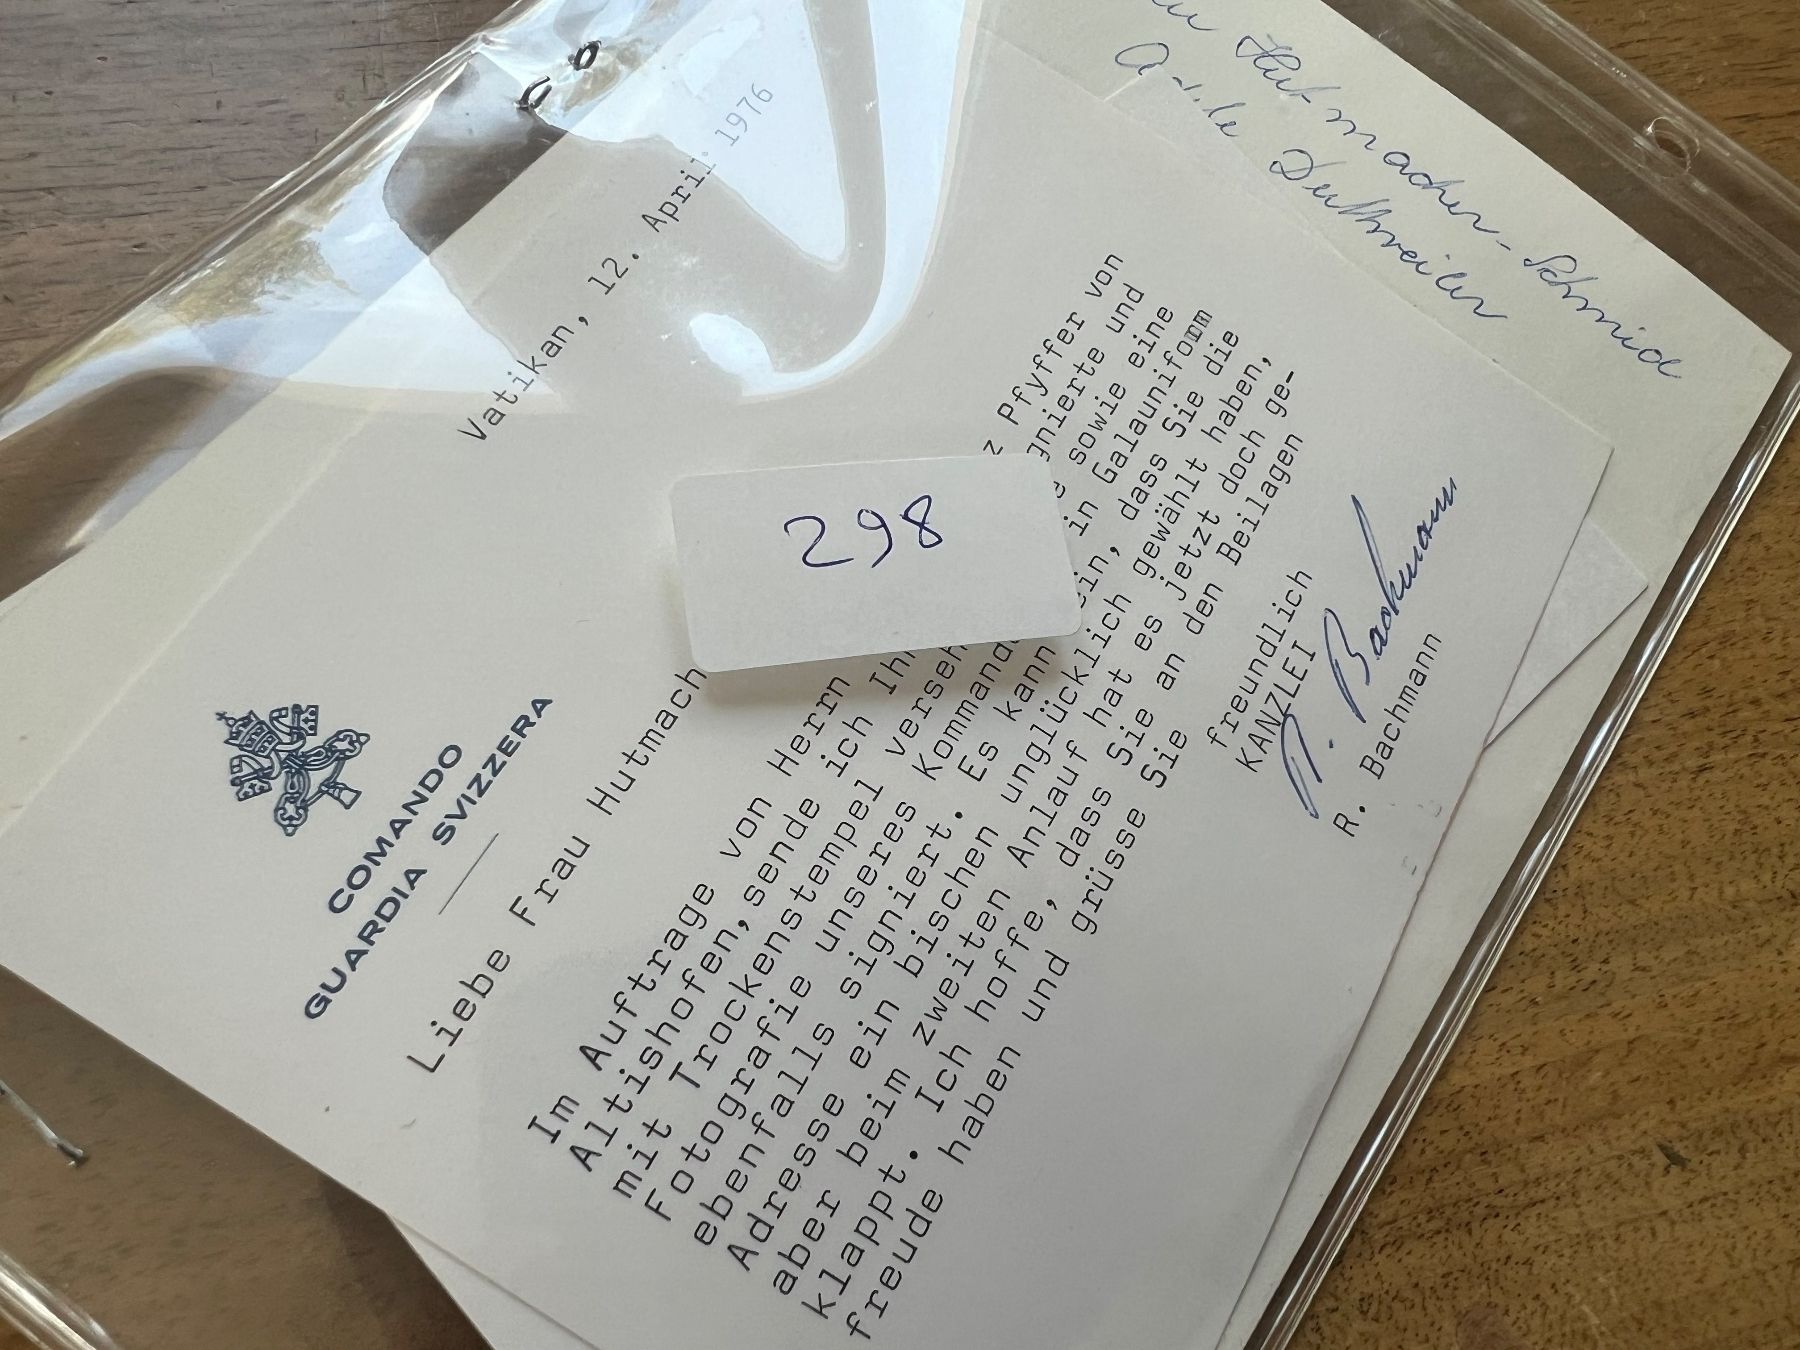 Hutmacher-Schmid
Duttweiler
COMANDO
GUARDIA SVIZZERA
Vatikan, 12. April 1976
Liebe Frau Hutmach
298
Im Auftrage von Herrn Pfyffer von
Altishofen, sende ich und
mit Trockenstempel sowie eine
Fotografie unseres in Galauniform
ebenfalls signiert. Es kann dass Sie die
Adresse ein bischen unglücklich gewählt haben,
aber beim zweiten Anlauf hat es jetzt doch ge-
klappt. Ich hoffe, dass Sie an den Beilagen
freude haben und grüsse Sie
freundlich
KANZLEI
R. Bachmann
R. Bachmann